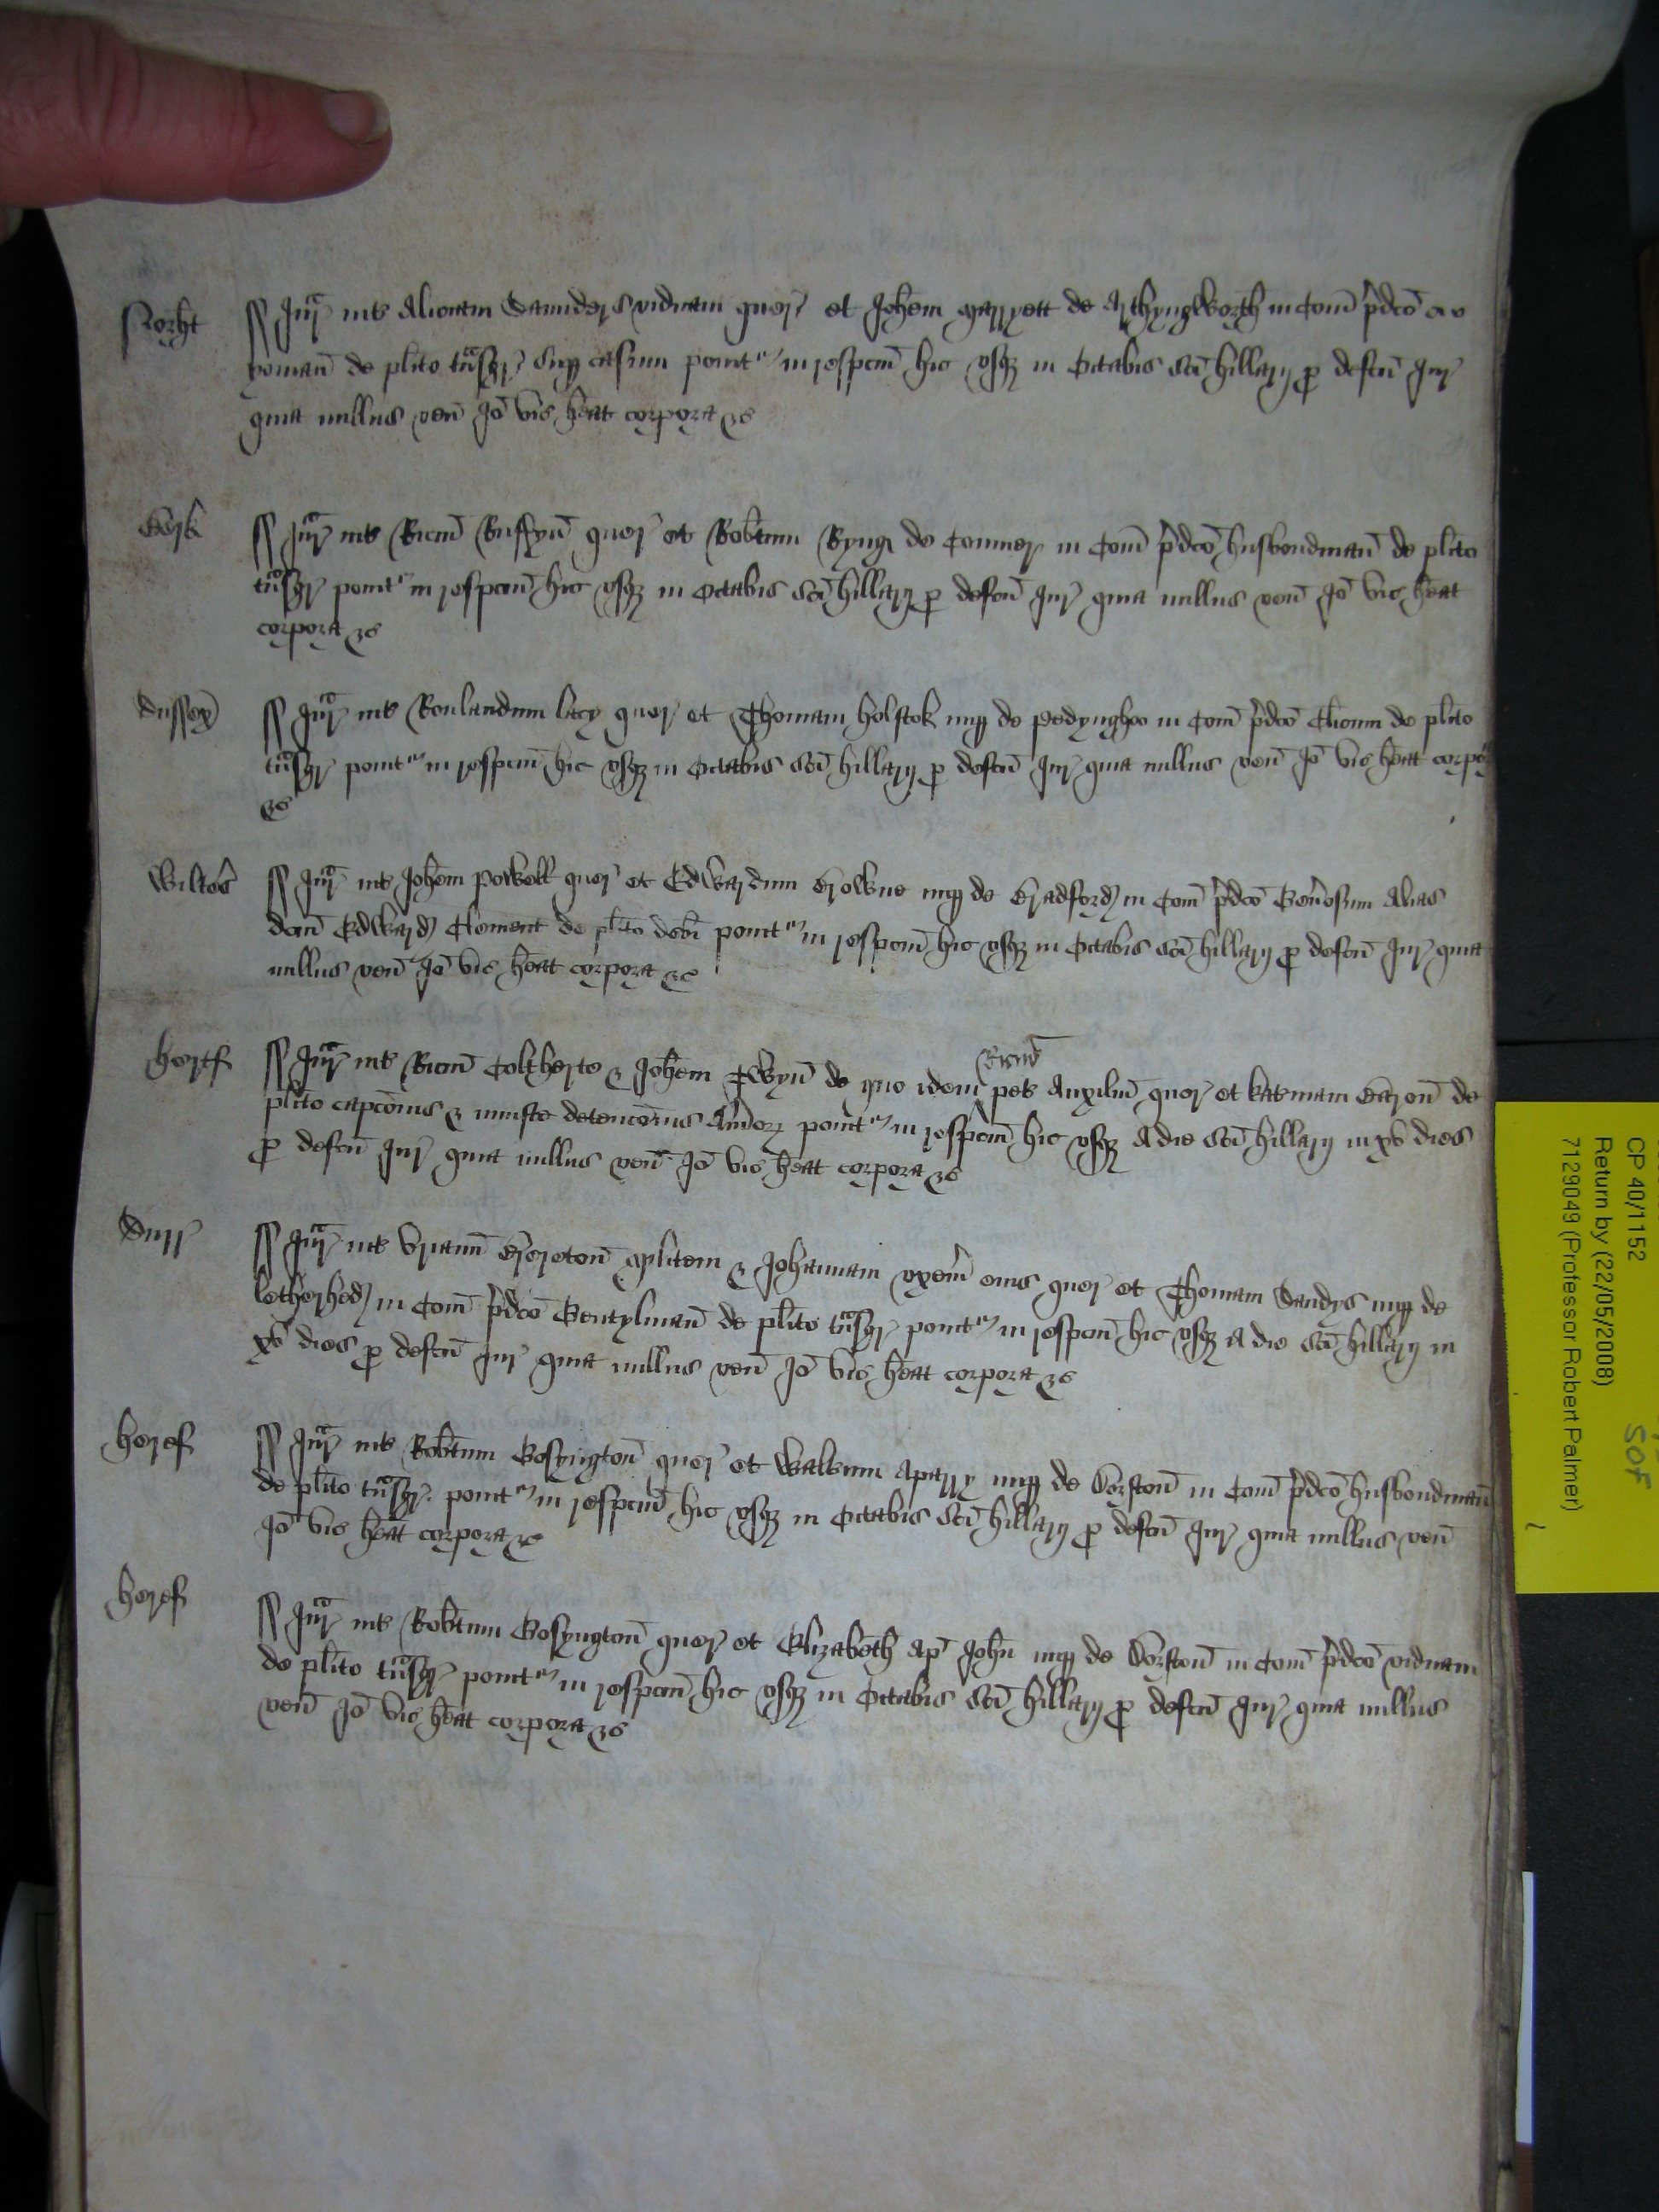 Norht
ss Jur̃ int̃ Aliciam Saunders viduam quer̃ et Joh̃em Maryett de Arthyngworth in Com̃ p̃dc̃o
yoman̄ de pl̃ito tr̃nsgr̃ sup casum ponit̃ in respc̃m hic usqz in Octabis Sc̃i Hillarij p defc̃u Jur̃
quia nullus ven̄ Jõ vic̃ h̃eat corpora zc̃
Berk
ss Jur̃ int̃ Ric̃m Ruffyn̄ quer̃ et Rob̃tum Kyng de Comner in Com̃ p̃dc̃o husbondman̄ de pl̃ito
tr̃nsgr̃ ponit̃ in respc̃m hic usqz in Octabis Sc̃i Hillarij p defc̃u Jur̃ quia nullus ven̄ Jõ vic̃ h̃eat
corpora zc̃
Sussex
ss Jur̃ int̃ Roulandum lacy quer̃ et Thomam Holstok nup de Pedynghoo in Com̃ p̃dc̃o Cl̃icum de pl̃ito
tr̃nsgr̃ ponit̃ in respc̃m hic usqz in Octabis Sc̃i Hillarij p defc̃u Jur̃ quia nullus ven̄ Jõ vic̃ h̃eat corpora
zc̃
Wiltes̃
ss Jur̃ int̃ Joh̃em Powell quer̃ et Edwardum Browne nup de Bradford in Com̃ p̃dc̃o Gen̄osum Alias
dc̃m Edward Clement de pl̃ito deb̃i ponit̃ in respc̃m hic usqz in Octabis Sc̃i Hillarij p defc̃u Jur̃ quia
nullus ven̄ Jõ vic̃ h̃eat corpora zc̃
Hertf
ss Jur̃ int̃ Ric̃m Coltherto & Joh̃em de quo idem Ric̃us pet̃ Auxiliũ quer̃ et Kat̃inam Baron̄ de
pl̃ito capc̃onis & iniuste detenc̃onis Av̄ior̃ ponit̃ in respc̃m hic usqz A die Sc̃i Hillarij in xv dies
p defc̃u Jur̃ quia nullus ven̄ Jõ vic̃ h̃eat corpora zc̃
Surr̃
ss Jur̃ int̃ Urianũ Brereton̄ Militem & Johannam uxem̃ eius quer̃ et Thomam Sandys nup de
letherhed in Com̃ p̃dc̃o Gentylman̄ de pl̃ito tr̃nsgr̃ ponit̃ in respc̃m hic usqz A die Sc̃i Hillarij in
xv dies p defc̃u Jur̃ quia nullus ven̄ Jõ vic̃ h̃eat corpora zc̃
Heref
ss Jur̃ int̃ Rob̃tum Bosyngton̄ quer̃ et Walt̃um Aparry nup de Dorston̄ in Com̃ p̃dc̃o husbondman̄
de pl̃ito tr̃nsgr̃ ponit̃ in respc̃m hic usqz in Octabis Sc̃i Hillarij p defc̃u Jur̃ quia nullus ven̄
Jõ vic̃ h̃eat corpora zc̃
Heref
ss Jur̃ int̃ Rob̃tum Bosyngton̄ quer̃ et Elizabeth Ap̃ Joh̃n nup de Dorston̄ in Com̃ p̃dc̃o viduam
de pl̃ito tr̃nsgr̃ ponit̃ in respc̃m hic usqz in Octabis Sc̃i Hillarij p defc̃u Jur̃ quia nullus
ven̄ Jõ vic̃ h̃eat corpora zc̃
CP 40/1152
Return by (22/05/2008)
7129049 (Professor Robert Palmer)